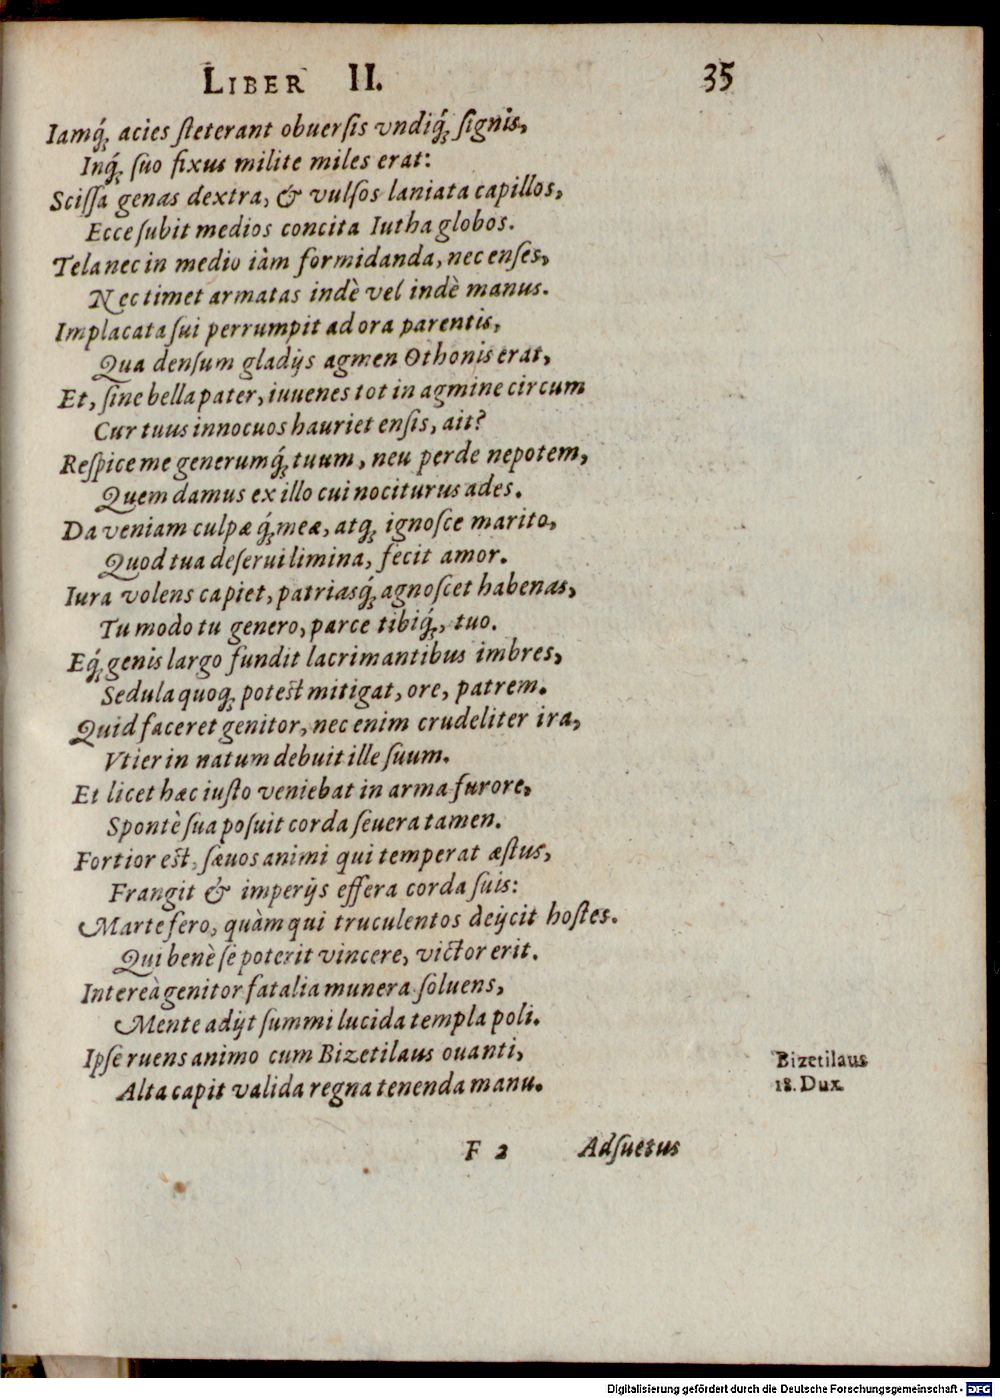 LIBER II. 35
Iamq́; acies ſteterant obuerſis vndiq́; ſignis,
Inq́; ſuo fixus milite miles erat:
Sciſſa genas dextra, & vulſos laniata capillos,
Ecce ſubit medios concita Iutha globos.
Tela nec in medio iàm formidanda, nec enſes,
Nec timet armatas indè vel indè manus.
Implacata ſui perrumpit ad ora parentis,
Qua denſum gladijs agmen Othonis erat,
Et, ſine bella pater, iuuenes tot in agmine circum
Cur tuus innocuos hauriet enſis, ait?
Reſpice me generumq́; tuum, neu perde nepotem,
Quem damus ex illo cui nociturus ades.
Da veniam culpæ q́; meæ, atq; ignoſce marito,
Quod tua deſerui limina, fecit amor.
Iura volens capiet, patriasq́; agnoſcet habenas,
Tu modo tu genero, parce tibiq́;, tuo.
Eq́; genis largo fundit lacrimantibus imbres,
Sedula quoq; poteſt mitigat, ore, patrem.
Quid faceret genitor, nec enim crudeliter ira,
Vtier in natum debuit ille ſuum.
Et licet hæc iuſto veniebat in arma furore,
Spontè ſua poſuit corda ſeuera tamen.
Fortior eſt, ſæuos animi qui temperat æſtus,
Frangit & imperijs effera corda ſuis:
Marte fero, quàm qui truculentos deijcit hoſtes.
Qui benè ſe poterit vincere, victor erit.
Intereà genitor fatalia munera ſoluens,
Mente adijt ſummi lucida templa poli.
Ipſe ruens animo cum Bizetilaus ouanti,
Alta capit valida regna tenenda manu.
Bizetilaus
18. Dux
F 2 Adſuetus
Digitalisierung gefördert durch die Deutsche Forschungsgemeinschaft - DFG